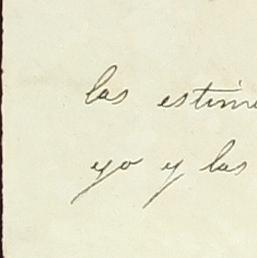 las estim
yo y las